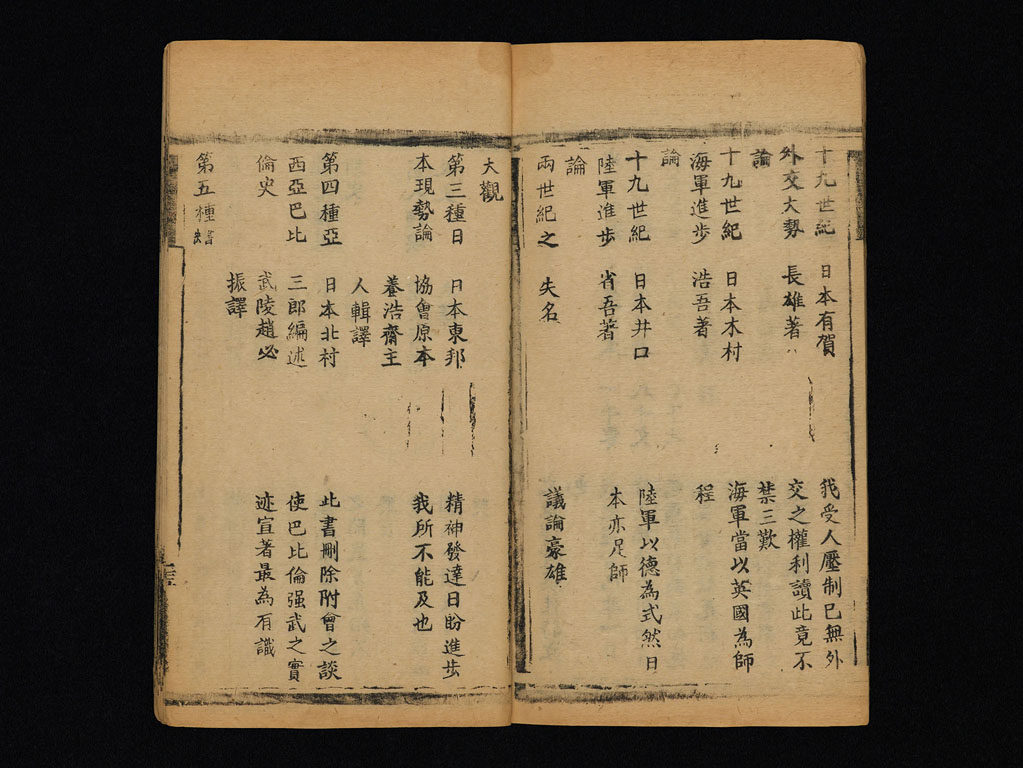 十九世紀　日本有賀　我受人壓制已無外
外交大勢　長雄著　交之權利讀此竟不
論　禁三歎
十九世紀　日本木村　海軍當以英國為師
海軍進步　浩吾著　程
論
十九世紀　日本井口　陸軍以德為式然日
陸軍進步　省吾著　本亦足師
論
兩世紀之　失名　議論豪雄
大觀
第三種日　日本東邦　精神發達日盼進步
本現勢論　協會原本　我所不能及也
養浩齋主
人輯譯
第四種亞　日本北村　此書刪除附會之談
西亞巴比　三郎編述　使巴比倫强武之實
倫史　武陵趙必　迹宣著最為有識
振譯
第五種